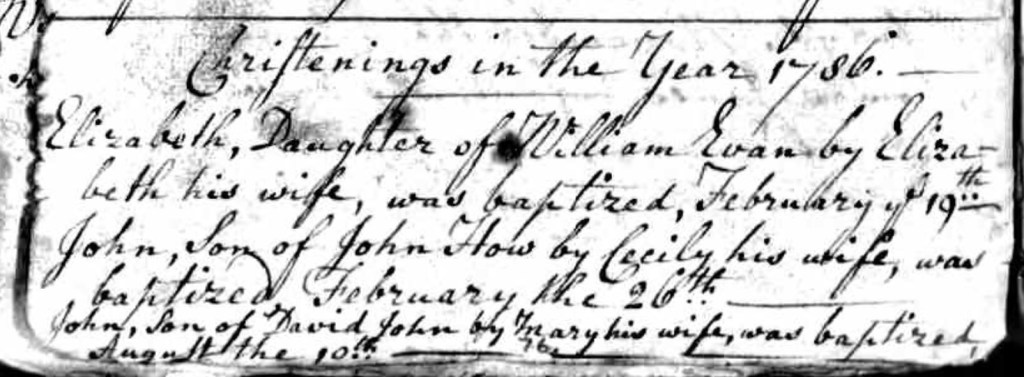 Christenings in the Year 1786.
Elizabeth, Daughter of William Evan by Eliza-
beth his wife, was baptized, February ye 19th
John, Son of John How by Cecily his wife, was
baptized, February the 26th
John, Son of David John by Mary his wife, was baptized,
August the 10th